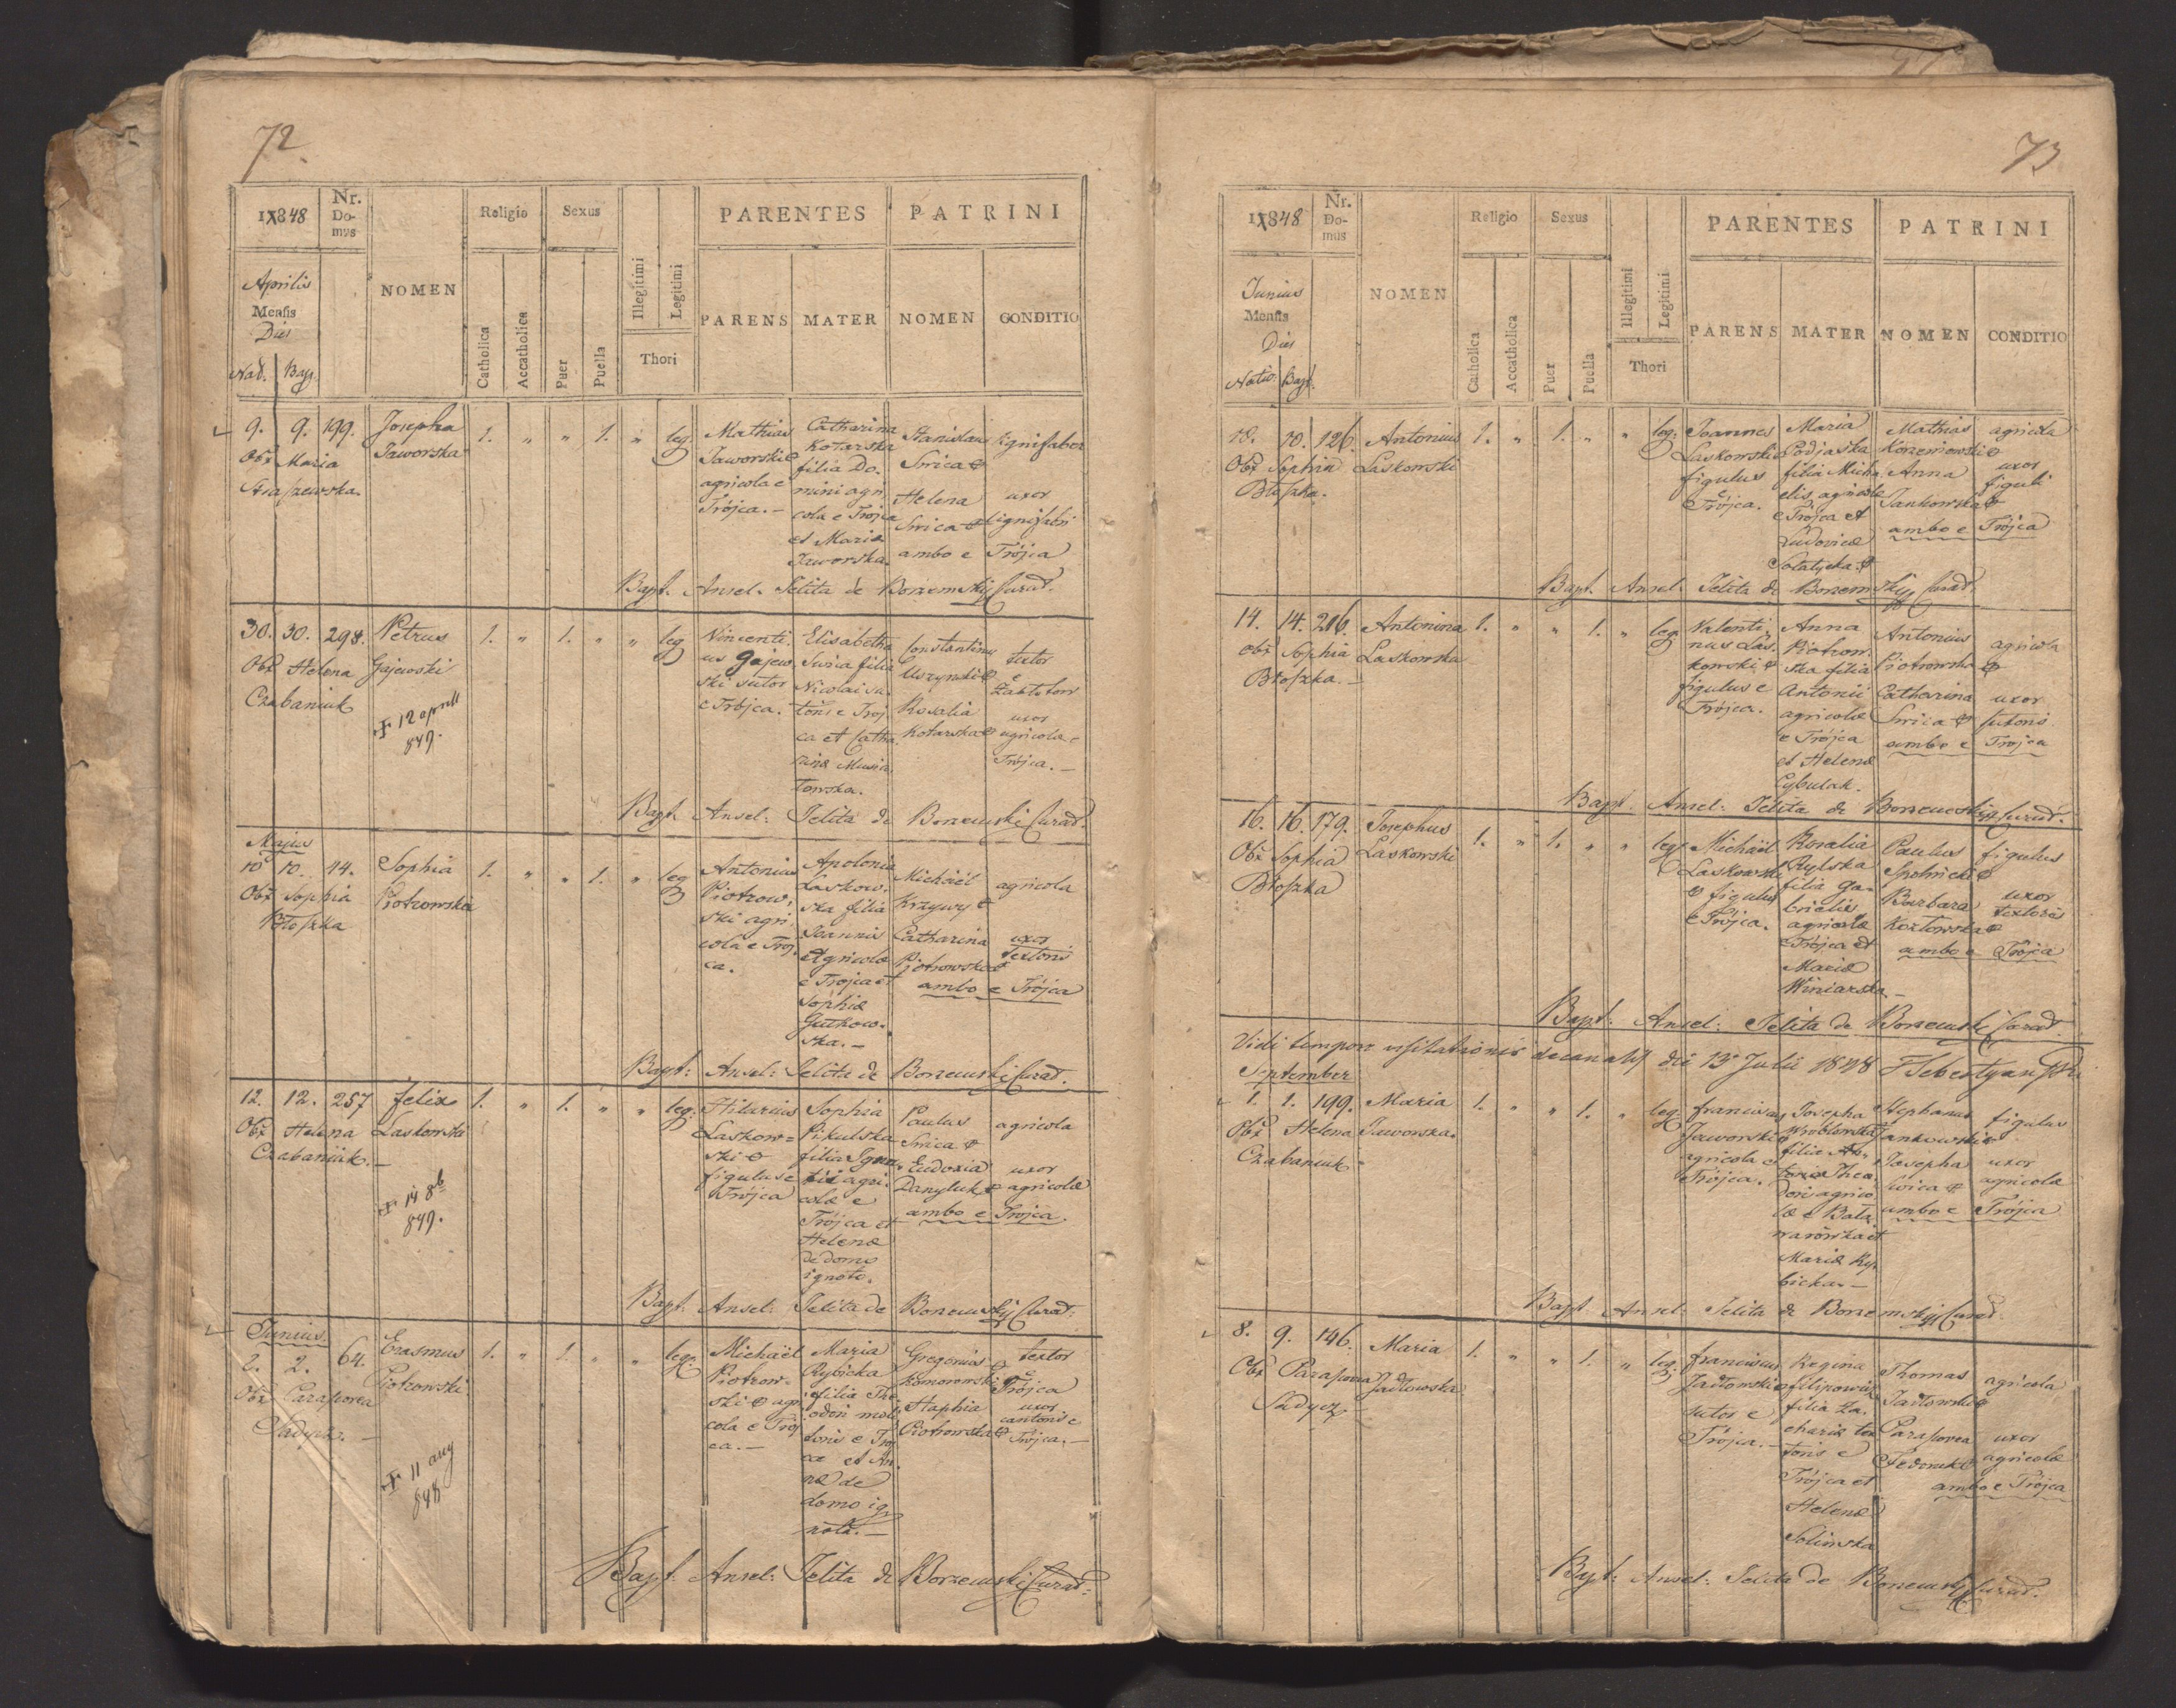 72.
1X848
Nr. Domus
NOMEN
Religio
Sexus
PARENTES
PATRINI
Aprilis
Mensis
Dies
Nat. Bapt.
Catholica
Accatholica
Puer
Puella
Illegitimi
Legitimi
Thori
PARENS
MATER
NOMEN
CONDITIO
9. 9. 199.
Obx Maria
Strapzewska.
Josepha
Jaworska
1. " " 1. " leg.
Mathias
Jaworski
agricola e
Trójca. –
Catharina
Kotarska
filia Do-
mini agri
cola e Trójca
et Maria
Jaworska.
Stanislaus
Swica
Helena
Swica
ambo e
lignifaber
uxor
lignifabri
Trójca
Bapt. Ansel. Jelita de Borzemskij Curat.
30. 30. 298.
Obx Helena
Czabaniuk
Petrus
Gajewski
12 april
849.
1. " 1. " " leg
Vincenti
us Gajew
ski sutor
e Trójca.
Elisabetha
Swica filia
Nicolai su
toris e Troj
ca et Catha
rinæ Musia
towska.
Constantinus
Uszynski
Rosalia
Kotarska
textor
e
uxor
agricolæ e
Trójca. –
Bapt. Ansel: Jelita de Borzemski Curat.
Majus
10 10. 44.
Obx Sophia
Błoszka
Sophia
Piotrowska
1. " " 1. " leg
Antonius
Piotrow,
ski agri
cola e Troj,
ca.
Apolonia
Laskow,
ska filia
Joannis
Agricolæ
e Trojca et
Sophiæ
Gutkow,
ska. –
Michaël
Krzywy
Catharina
Piotrowska
ambo e
agricola
uxor
Textoris
Trójca
Bapt: Ansel: Jelita de Borzemski Curat.
12. 12. 257
Obx Helena
Czabaniuk. –
Felix
Laskowski
14 8b
849.
1. " 1. " " leg.
Hilarius
Laskow=
ski
figulus e
Trójca
Sophia
Pikulska
filia Igna,
tii agri,
colæ e
Trójca et
Helenæ
de domo
ignota.
Paulus
Swica
Eudoxia
Danyluk
ambo e
agricola
uxor
agricolæ
Trójca.
Bapt. Ansel: Jelita de Borzemskij Curat:
Junius.
2. 2. 64.
Obx Paraporea
Sadycz. –
Erasmus
Piotrowski
11 aug
848
1. " 1. " " leg.
Michaël
Piotrow-
ski agri
cola e Troj
ca. –
Maria
Rybicka
filia The
odori moli
toris e Troj
ca et An
næ de
domo ig
nota. –
Gregorius
Komorowski
Staphia
Piotrowska
textor
e
Trójca
uxor
cantoris e
Trójca. –
Bapt. Ansel: Jelita de Borzemski Curat:
73
1X848
Nr. Domus
NOMEN
Religio
Sexus
PARENTES
PATRINI
Junius
Mensis
Dies
Nativ. Bapt.
Catholica
Accatholica
Puer
Puella
Illegitimi
Legitimi
Thori
PARENS
MATER
NOMEN
CONDITIO
10. 10. 126.
Obx Sophia
Błoszka.
Antonius
Laskowski
1. " 1. " " leg:
Joannes
Laskowski
figulus
e
Trójca.
Maria
Podjaska
filia Micha
elis agricolæ
e Trójca et
Ludovicæ
Mathias
Korzeniowski
Anna
Jankowska
ambo e
agricola
uxor
figuli
Trójca
Bapt. Ansel: Jelita de Borzemskij Curat.
14. 14. 216.
Obx Sophia
Błoszka. –
Antonina
Laskowska
1. " " 1. " leg
Valenti
nus Las,
kowski
figulus e
Trójca.
Anna
Piotrow,
ska filia
Antonii
agricolæ
e Trójca
et Helenæ
Cybulak.
Antonius
Piotrowska
Catharina
Swica
ambo e
agricola
uxor
sutoris
Trojca
Bapt. Ansel: Jelita de Borzemskij Curat.
16. 16. 179.
Obx Sophia
Błoszka
Josephus
Laskowski
1. " 1. " " leg.
Michaël
Laskowski
figulus
e Trójca.
Rosalia
Rylska
filia Ga,
brielis
agricolæ
e Trójca et
Mariæ
Winiarska –
Paulus
Barbara
Kozłowska
ambo e
figulus
uxor
textoris
Trójca
Bapt: Ansel: Jelita de Borzemski Curat.
Vidi tempore visitationis decanalis die 13 Julii 1848
September
1. 1. 199.
Obx Helena
Czabaniuk
Maria
Jaworska.
1. " " 1. " leg.
Franciscus
Jaworski
agricola e
Trójca.
Josepha
Wroblewska
filia
Theo
dori agrico
læ e
et
Mariæ Ry,
bicka. –
Stephanus
Jankowski
Josepha
Swica
ambo e
figulus
uxor
agricolæ
Trójca
Bapt Ansel: Jelita de Borzemskij Curat
8. 9. 146.
Obx Paraporea
Sadycz
Maria
Jadłowska
1. " " 1. " leg.
Franciscus
Jadłowski
sutor e
Trójca. –
Regina
Filipowicz
filia Za,
chariæ tex
toris e
Trójca et
Helenæ
Solimska
Thomas
Jadłowski
Paraporea
Fedoruk
ambo e
agricola
uxor
agricolæ
Trójca
Bapt. Ansel: Jelita de Borzemskij Curat.